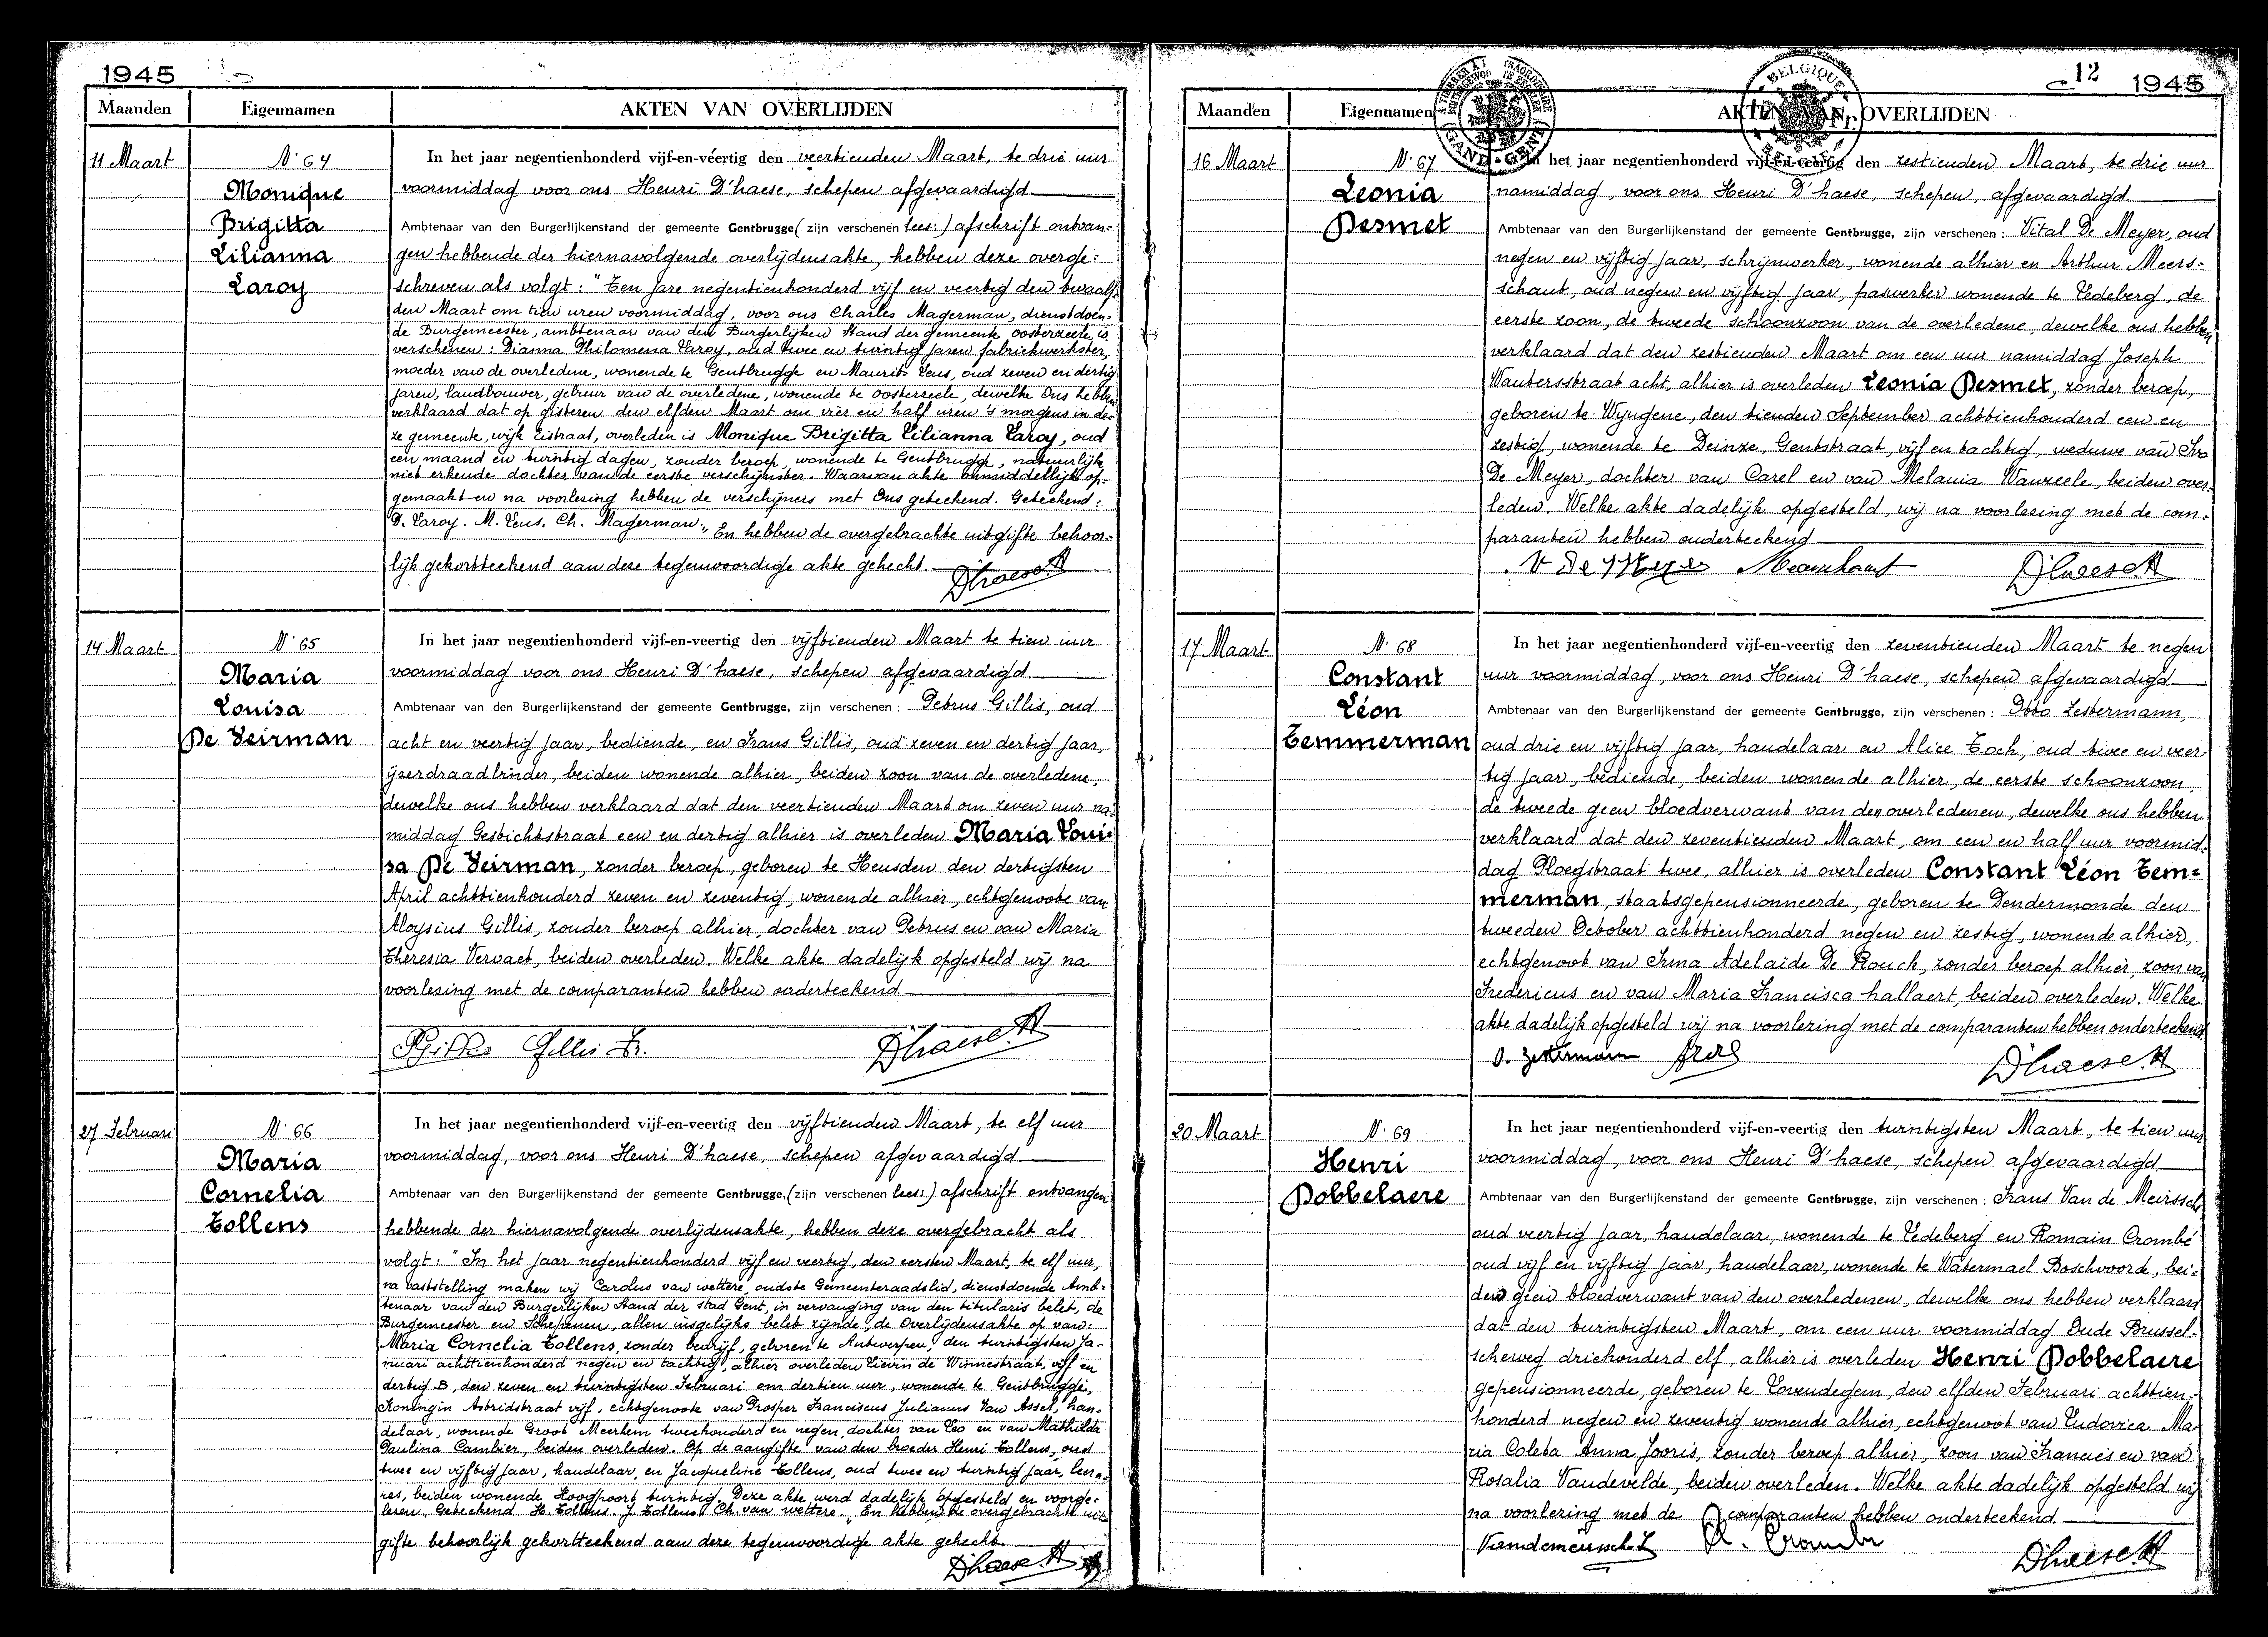 1945
Maanden Eigennamen AKTEN VAN OVERLIJDEN
11 Maart
N° 64
Monique
Brigitta
Lilianna
Laroy
In het jaar negentienhonderd vijf-en-véertig den veertienden Maart, te drie uur
voormiddag voor ons Henri D'haese, schepen afgevaardigd
Ambtenaar van den Burgerlijkenstand der gemeente Gentbrugge (zijn verschenen lees:) afschrift ontvan-
gen hebbende der hiernavolgende overlijdensakte, hebben deze overge-
schreven als volgt: "Ten jare negentienhonderd vijf en veertig den twaalf-
den Maart om tien uren voormiddag, voor ons Charles Magerman, dienstdoen-
de Burgemeester, ambtenaar van den Burgerlijken Stand der gemeente Oosterzeele, is
verschenen: Dianna Philomena Laroy, oud twee en twintig jaren fabriekwerkster,
moeder van de overledene, wonende te Gentbrugge en Maurits Leus, oud zeven en dertig
jaren, landbouwer, gebuur van de overledene, wonende te Oosterzeele, dewelke Ons hebben
verklaard dat op gisteren den elfden Maart om vier en half uren 's morgens in de-
ze gemeente, wijk Eistraat, overleden is Monique Brigitta Lilianna Laroy, oud
een maand en twintig dagen, zonder beroep, wonende te Gentbrugge, natuurlijk
niet erkende dochter van de eerste verschijnster. Waarvan akte onmiddellijk op-
gemaakt en na voorlezing hebben de verschijners met Ons geteekend. Geteekend:
D. Laroy. M. Leus. Ch. Magerman." En hebben de overgebrachte uitgifte behoor-
lijk gekortteekend aan deze tegenwoordige akte gehecht.
D'haese H
14 Maart
N° 65
Maria
Louisa
De Veirman
In het jaar negentienhonderd vijf-en-veertig den vijftienden Maart te tien uur
voormiddag voor ons Henri D'haese, schepen afgevaardigd
Ambtenaar van den Burgerlijkenstand der gemeente Gentbrugge, zijn verschenen: Petrus Gillis, oud
acht en veertig jaar, bediende, en Frans Gillis, oud zeven en dertig jaar,
ijzerdraadbinder, beiden wonende alhier, beiden zoon van de overledene,
dewelke ons hebben verklaard dat den veertienden Maart om zeven uur na-
middag Gestichtstraat een en dertig alhier is overleden Maria Loui-
sa De Veirman, zonder beroep, geboren te Heusden den dertigsten
April achttienhonderd zeven en zeventig, wonende alhier, echtgenoote van
Aloysius Gillis, zonder beroep alhier, dochter van Petrus en van Maria
Theresia Vervaet, beiden overleden. Welke akte dadelijk opgesteld wij na
voorlezing met de comparanten hebben onderteekend
Gillis Fr. D'haese H
27 Februari
N° 66
Maria
Cornelia
Tollens
In het jaar negentienhonderd vijf-en-veertig den vijftienden Maart, te elf uur
voormiddag, voor ons Henri D'haese, schepen afgevaardigd
Ambtenaar van den Burgerlijkenstand der gemeente Gentbrugge, (zijn verschenen lees:) afschrift ontvangen
hebbende der hiernavolgende overlijdensakte, hebben deze overgebracht als
volgt: "In het jaar negentienhonderd vijf en veertig, den eersten Maart, te elf uur,
na vaststelling maken wij Carolus van wettere, oudste Gemeenteraadslid, dienstdoende Amb-
tenaar van den Burgerlijken Stand der stad Gent, in vervanging van den titularis belet, de
Burgemeester en Schepenen, allen insgelijks belet zijnde, de Overlijdensakte op van:
Maria Cornelia Tollens, zonder bedrijf, geboren te Antwerpen, den twintigsten Ja-
nuari achttienhonderd negen en tachtig, alhier overleden Lievin de Winnestraat, vijf en
dertig B, den zeven en twintigsten Februari om dertien uur, wonende te Gentbrugge,
Koningin Astridstraat vijf, echtgenoote van Prosper Franciscus Julianus Van Assel, han-
delaar, wonende Groot Meerhem tweehonderd en negen, dochter van Leo en van Mathilda
Paulina Cambier, beiden overleden. Op de aangifte van den broeder Henri Tollens, oud
twee en vijftig jaar, handelaar, en Jacqueline Tollens, oud twee en twintig jaar, leera-
res, beiden wonende Hoogpoort twintig. Deze akte werd dadelijk opgesteld en voorge-
lezen. Geteekend H. Tollens. J. Tollens. Ch. van wettere." En hebben de overgebrachte uit-
gifte behoorlijk gekortteekend aan deze tegenwoordige akte gehecht.
D'haese H
12 1945
BELGIQUE
GAND - GENT
Maanden Eigennamen AKTEN VAN OVERLIJDEN
16 Maart
N° 67
Leonia
Desmet
In het jaar negentienhonderd vijf-en-veertig den zestienden Maart, te drie uur
namiddag, voor ons Henri D'haese, schepen, afgevaardigd
Ambtenaar van den Burgerlijkenstand der gemeente Gentbrugge, zijn verschenen: Vital De Meyer, oud
negen en vijftig jaar, schrijnwerker, wonende alhier en Arthur Meers-
schaut, oud negen en vijftig jaar, paswerker wonende te Ledeberg, de
eerste zoon, de tweede schoonzoon van de overledene, dewelke ons hebben
verklaard dat den zestienden Maart om een uur namiddag Joseph
Wautersstraat acht, alhier is overleden Leonia Desmet, zonder beroep,
geboren te Wyngene, den tienden September achttienhonderd een en
zestig, wonende te Deinze, Gentstraat, vijf en tachtig, weduwe van Ivo
De Meyer, dochter van Carel en van Melania Wanzeele, beiden over-
leden. Welke akte dadelijk opgesteld, wij na voorlezing met de com-
paranten hebben onderteekend
V De Meyer Meerschaut D'haese H
17 Maart
N° 68
Constant
Léon
Temmerman
In het jaar negentienhonderd vijf-en-veertig den zeventienden Maart te negen
uur voormiddag, voor ons Henri D'haese, schepen afgevaardigd
Ambtenaar van den Burgerlijkenstand der gemeente Gentbrugge, zijn verschenen: Otto Zestermann,
oud drie en vijftig jaar, handelaar en Alice Toch, oud twee en veer-
tig jaar, bediende, beiden wonende alhier, de eerste schoonzoon,
de tweede geen bloedverwant van den overledenen, dewelke ons hebben
verklaard dat den zeventienden Maart, om een en half uur voormid-
dag Ploegstraat twee, alhier is overleden Constant Léon Tem-
merman, staatsgepensionneerde, geboren te Dendermonde den
tweeden October achttienhonderd negen en zestig, wonende alhier,
echtgenoot van Irma Adelaïde De Rouck, zonder beroep alhier, zoon van
Fredericus en van Maria Francisca hallaert, beiden overleden. Welke
akte dadelijk opgesteld wij na voorlezing met de comparanten hebben onderteekend
O. Zestermann D'haese H
20 Maart
N° 69
Henri
Dobbelaere
In het jaar negentienhonderd vijf-en-veertig den twintigsten Maart, te tien uur
voormiddag, voor ons Henri D'haese, schepen, afgevaardigd
Ambtenaar van den Burgerlijkenstand der gemeente Gentbrugge, zijn verschenen: Frans Van de Meirssche
oud veertig jaar, handelaar, wonende te Ledeberg en Romain Crombé
oud vijf en vijftig jaar, handelaar, wonende te Watermael Boschvoorde, bei-
den geen bloedverwant van den overledenen, dewelke ons hebben verklaard
dat den twintigsten Maart, om een uur voormiddag Oude Brussel-
scheweg driehonderd elf, alhier is overleden Henri Dobbelaere
gepensionneerde, geboren te Lovendegem, den elfden Februari achttien-
honderd negen en zeventig wonende alhier, echtgenoot van Ludovica Ma-
ria Coleta Anna Jooris, zonder beroep alhier, zoon van Francies en van
Rosalia Vandevelde, beiden overleden. Welke akte dadelijk opgesteld wij
na voorlezing met de comparanten hebben onderteekend
R. Crombé D'haese H